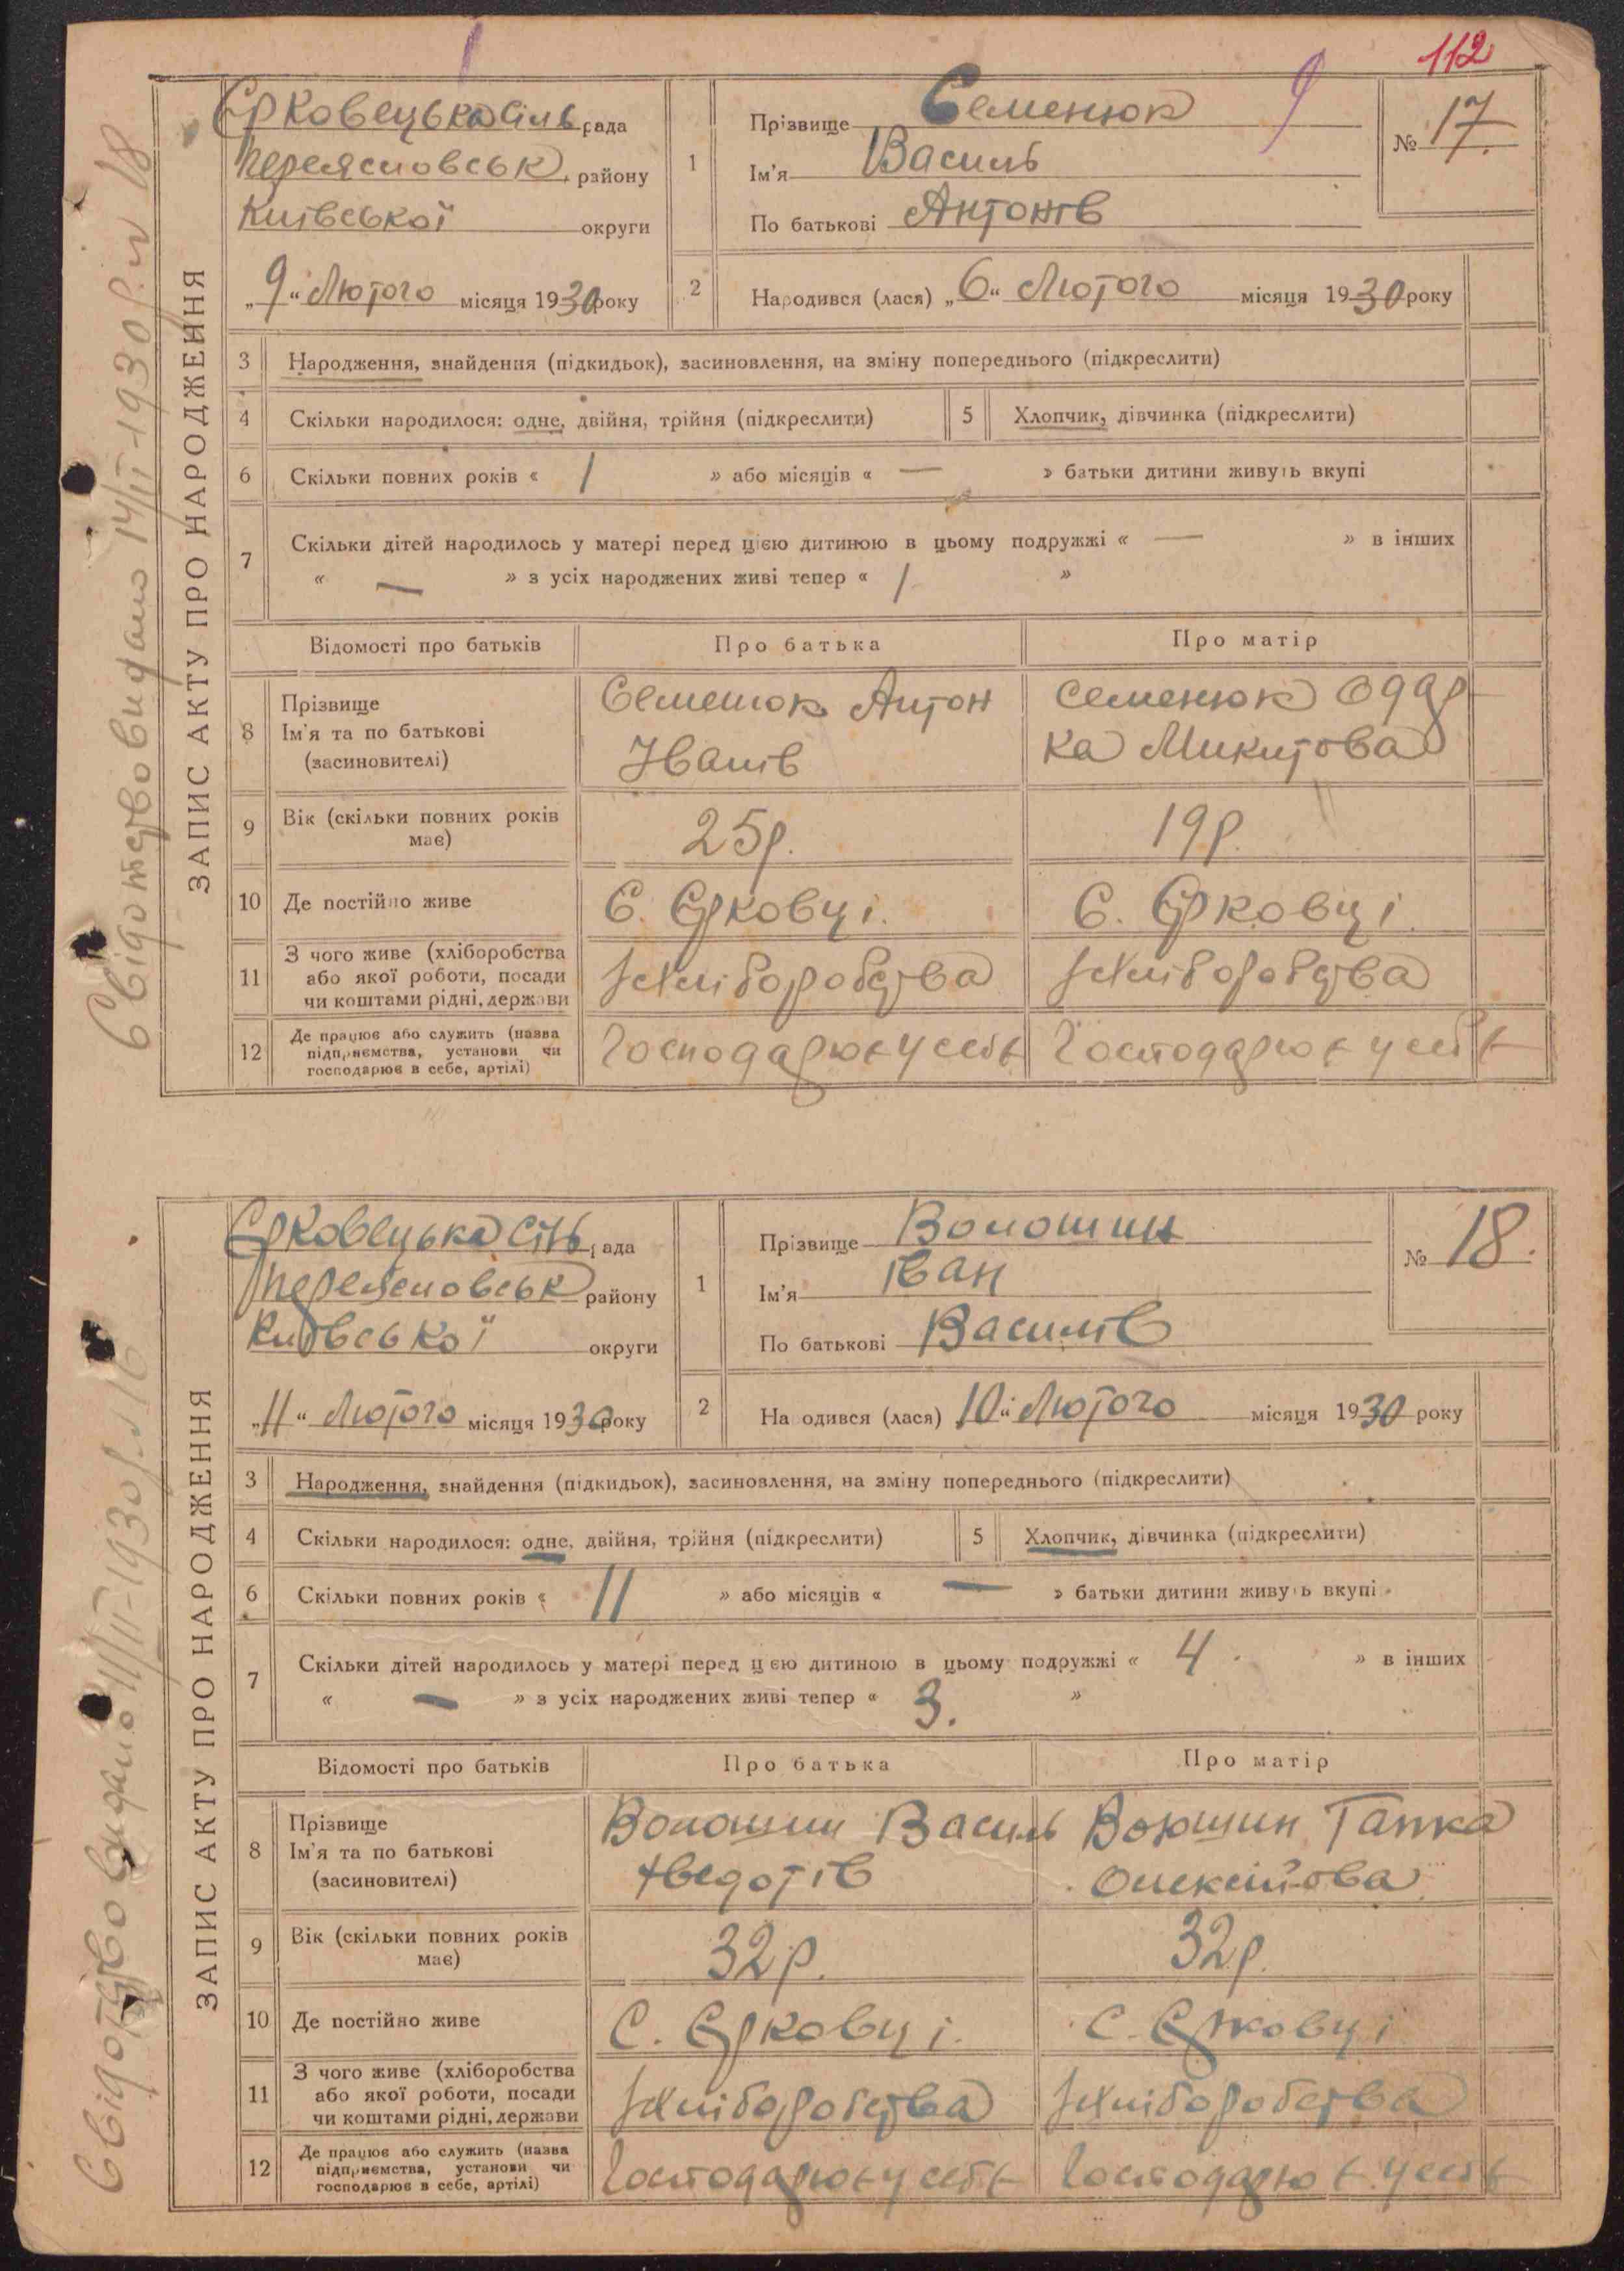 112
Свідотство видано 14/II-1930 р. № 18
ЗАПИС АКТУ ПРО НАРОДЖЕННЯ
Єрковецька сіль рада
Переясловськ району
Київської округи
„9“ Лютого місяця 1930 року
1
Прізвище Семенюк
Ім'я Василь
По батькові Антонів
№ 17.
2
Народився (лася) „6“ Лютого місяця 1930 року
3 Народження, знайдення (підкидьок), засиновлення, на зміну попереднього (підкреслити)
4 Скільки народилося: одне, двійня, трійня (підкреслити) 5 Хлопчик, дівчинка (підкреслити)
6 Скільки повних років « 1 » або місяців « — » батьки дитини живуть вкупі
7 Скільки дітей народилось у матері перед цією дитиною в цьому подружжі « — » в інших
« — » з усіх народжених живі тепер « 1 »
Відомості про батьків Про батька Про матір
8 Прізвище
Ім'я та по батькові
(засиновителі)
Семенюк Антон
Іванів
Семенюк Одар
ка Микитова
9 Вік (скільки повних років
має)
25р.
19р.
10 Де постійно живе С. Єрковці. С. Єрковці
11 З чого живе (хліборобства
або якої роботи, посади
чи коштами рідні, держави
з хліборобства з хліборобства
12 Де працює або служить (назва
підприємства, установи чи
господарює в себе, артілі)
Господарює у себе Господарює у себе
Свідотство видано 11/II-1930 р. № 16
ЗАПИС АКТУ ПРО НАРОДЖЕННЯ
Єрковецька сіль рада
Переясловськ району
Київської округи
„11“ Лютого місяця 1930 року
1
Прізвище Волошин
Ім'я Іван
По батькові Василів
№ 18.
2
Народився (лася) „10“ Лютого місяця 1930 року
3 Народження, знайдення (підкидьок), засиновлення, на зміну попереднього (підкреслити)
4 Скільки народилося: одне, двійня, трійня (підкреслити) 5 Хлопчик, дівчинка (підкреслити)
6 Скільки повних років « 11 » або місяців « — » батьки дитини живуть вкупі
7 Скільки дітей народилось у матері перед цією дитиною в цьому подружжі « 4. » в інших
« — » з усіх народжених живі тепер « 3. »
Відомості про батьків Про батька Про матір
8 Прізвище
Ім'я та по батькові
(засиновителі)
Волошин Василь
Хведотів
Волошин Гапка
Олексійова
9 Вік (скільки повних років
має)
32р.
32р.
10 Де постійно живе С. Єрковці. С. Єрковці
11 З чого живе (хліборобства
або якої роботи, посади
чи коштами рідні, держави
з хліборобства з хліборобства
12 Де працює або служить (назва
підприємства, установи чи
господарює в себе, артілі)
Господарює у себе Господарює у себе